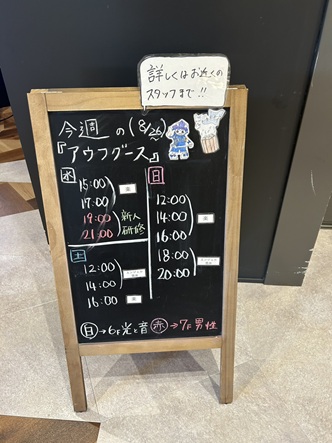 詳しくはお近くの
スタッフまで!!
今週の(8/26〜)
『アウフグース』
水
15:00
17:00
19:00
21:00
新人
研修
土
12:00
14:00
16:00
日
12:00
14:00
16:00
18:00
20:00
白→6F光と音 赤→7F男性